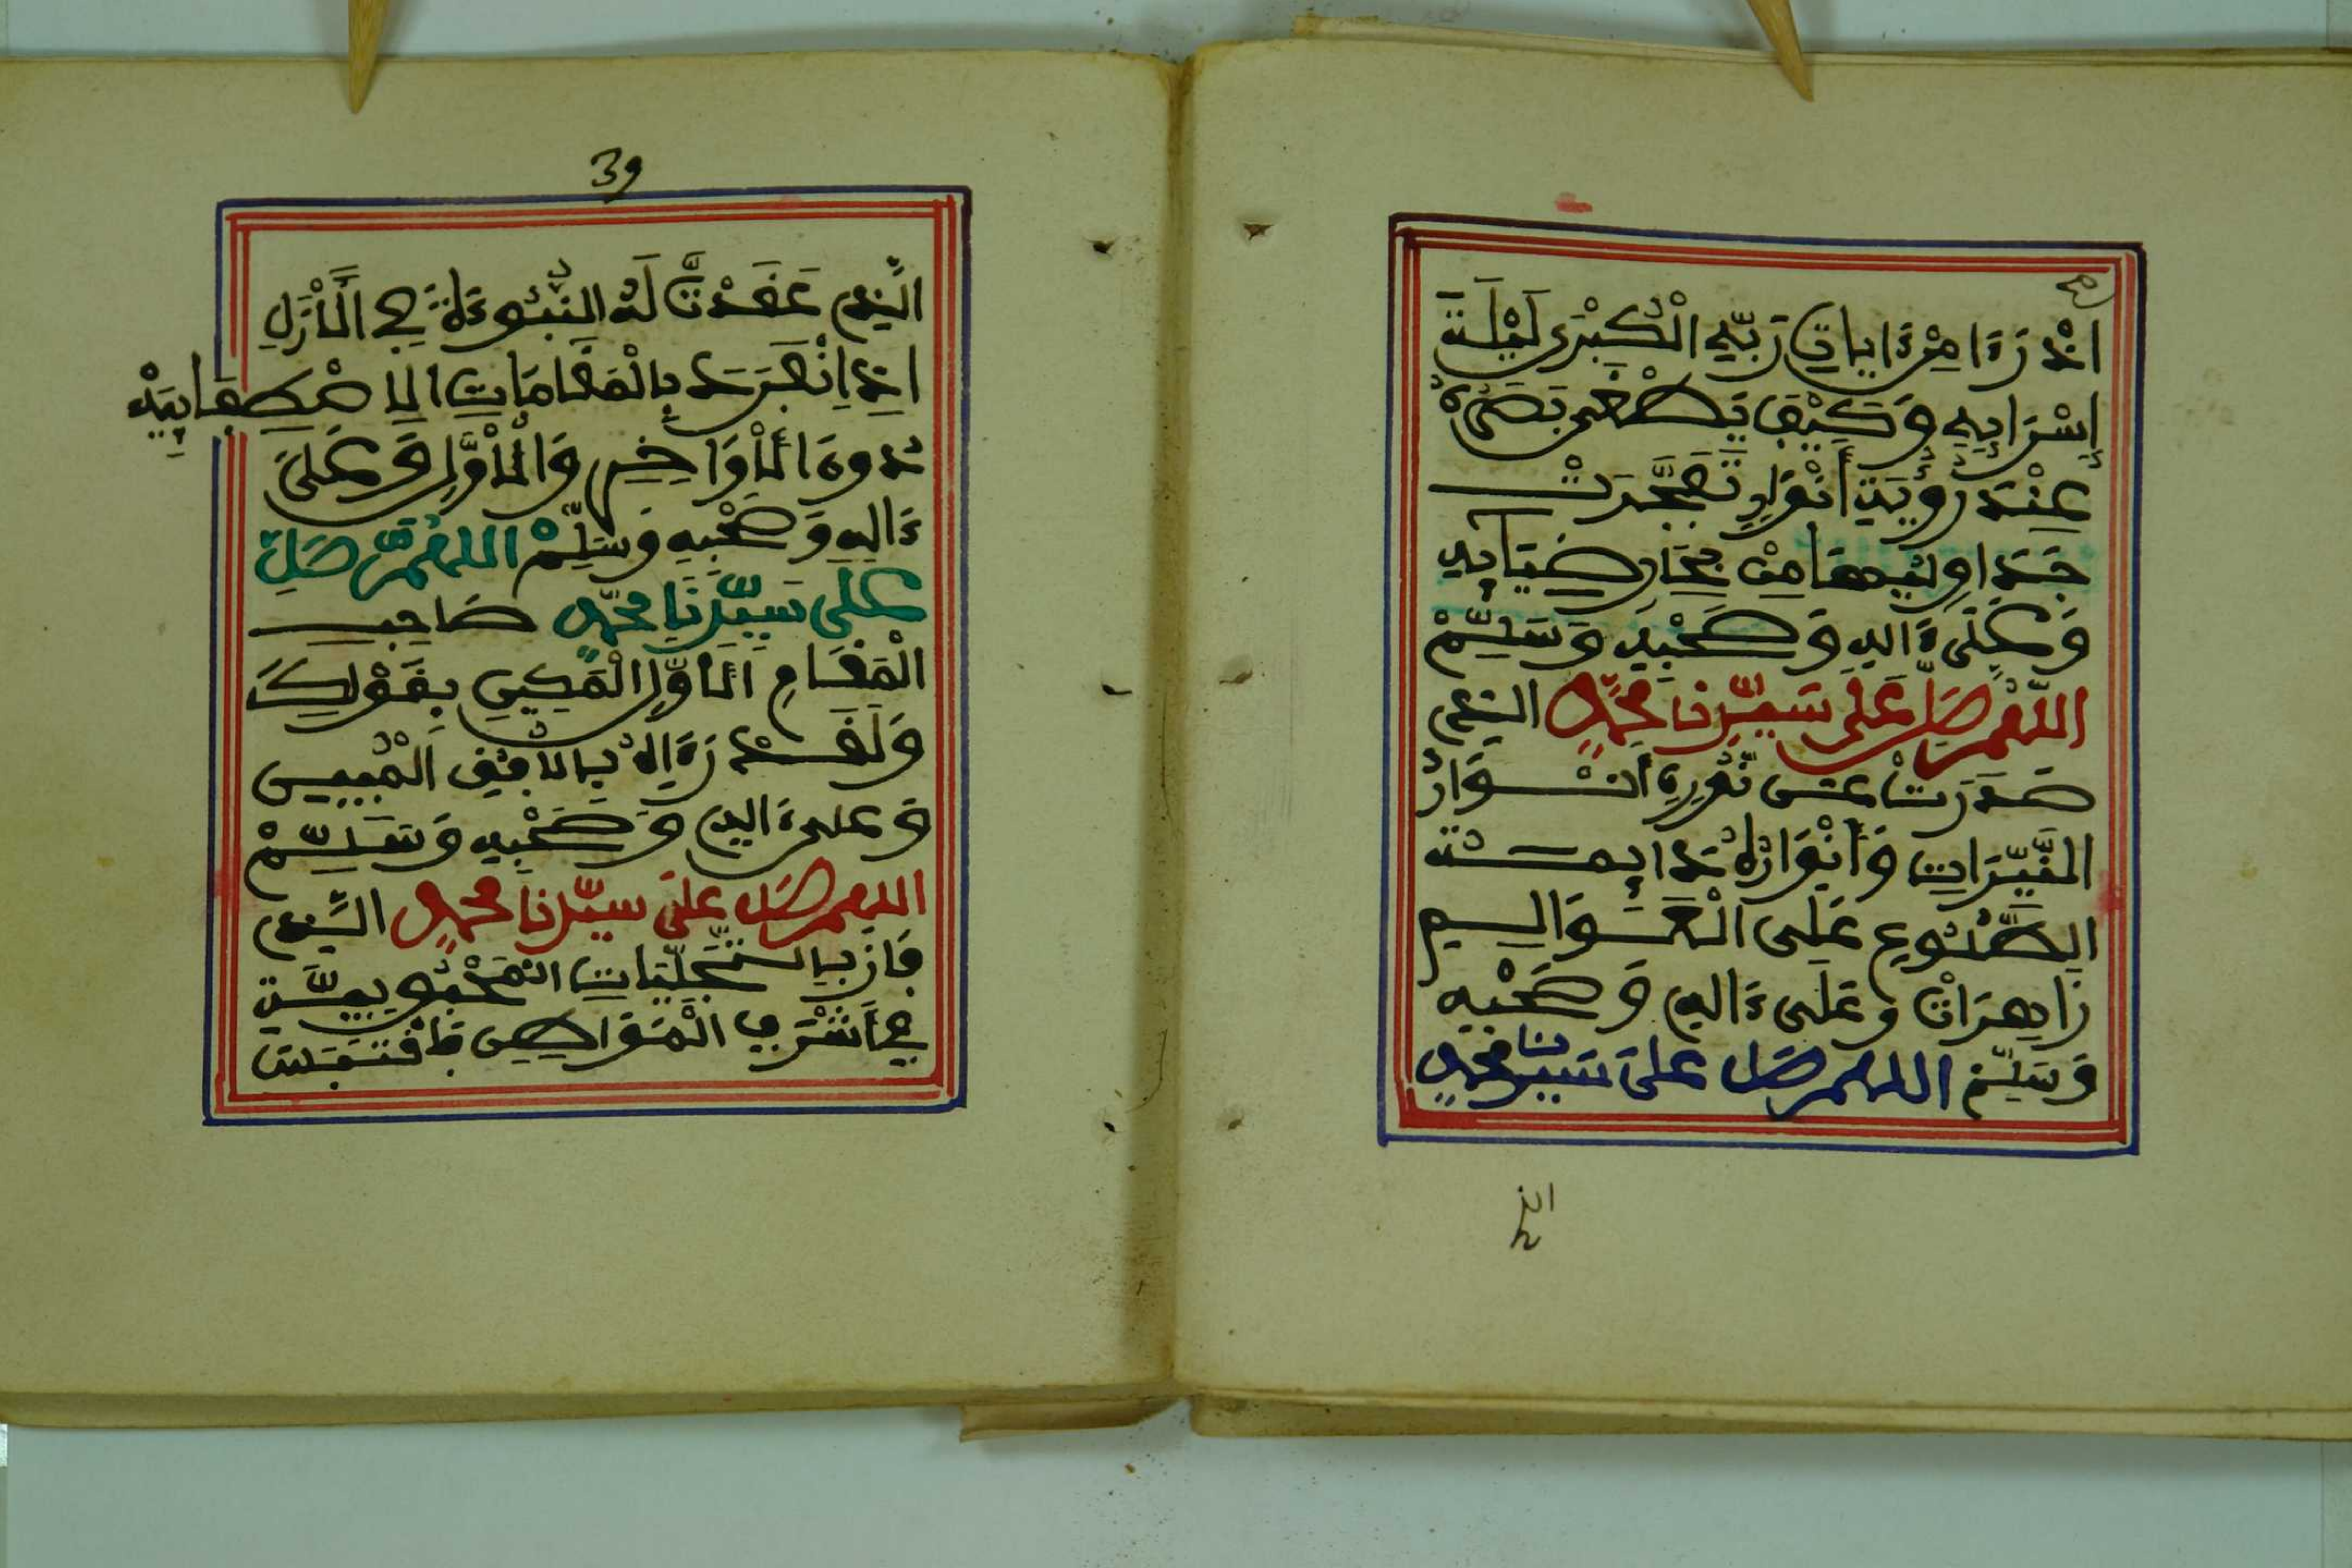 اذْ رَءَا مِنْ ءَايَاتِ رَبِّهِ الْكُبْرَى لَيْلَةَ
إِسْرَائِهِ وَكَيْفَ يَطْغَى بَصَرُهُ
عِنْدَ رُؤْيَةِ أَنْوَارٍ تَفَجَّرَتْ
جَدَاوِلُهَا مِنْ بِحَارِ ضِيَائِهِ
وَعَلَى ءَالِهِ وَصَحْبِهِ وَسَلِّمْ
اللَّهُمَّ صَلِّ عَلَى سَيِّدِنَا مُحَمَّدٍ الذِي
صَدَرَتْ عَنْ نُورِهِ أَنْوَارُ
النَّيِّرَاتِ وَأَنْوَارُهُ دَائِمَةُ
الطُّلُوعِ عَلَى الْعَوَالِمِ
زَاهِرَاتْ وَعَلَى ءَالِهِ وَصَحْبِهِ
وَسَلِّمْ اللهم صَل عَلَى سَيِّدِنَا مُحَمَّدٍ
الذِ
39
الَّذِي عَقَدْتَّ لَهُ النُّبُوءَةَ فِي الْأَزَلِ
اذِ اِنْفَرَدَ بِالْمَقَامَاتِ الِاصْطِفَائِيَّهْ
دُونَ الْأَوَاخِرِ وَالْأُوَّلِ وَعَلَى
ءَالِهِ وَصَحْبِهِ وَسَلِّمْ اللهُمَّ صَلِّ
عَلَى سَيِّدِنَا مُحَمَّدٍ صَاحِبِ
الْمَقَامِ الْأَوَّلِ الْمَكِينِ بِقَوْلِكَ
وَلَقَدْ رَءَاهُ بِالْأُفُقِ الْمُبِينِ
وَعَلَى ءَالِهِ وَصَحْبِهِ وَسَلِّمْ
اللهم صَل عَلَى سيِّدنَا مُحَمَّدٍ الذِي
فَازَ بِالتَّجَلِّيَاتِ الْمَحْبُوبِيَّةِ
فِي أَشْرَفِ الْمَوَاطِنِ فَاقْتَبَسَ